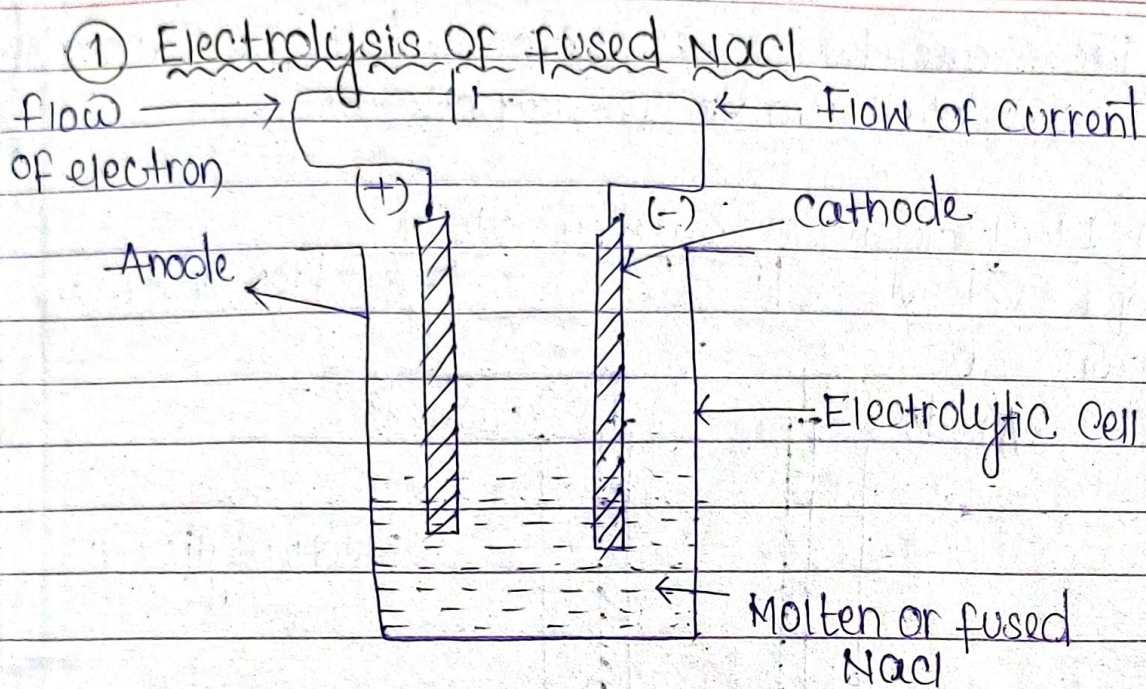 ① Electrolysis Of fused Nacl
flow
of electron
Flow of Current
(+)
(-)
Cathode
Anode
Electrolytic Cell
Molten or fused
Nacl